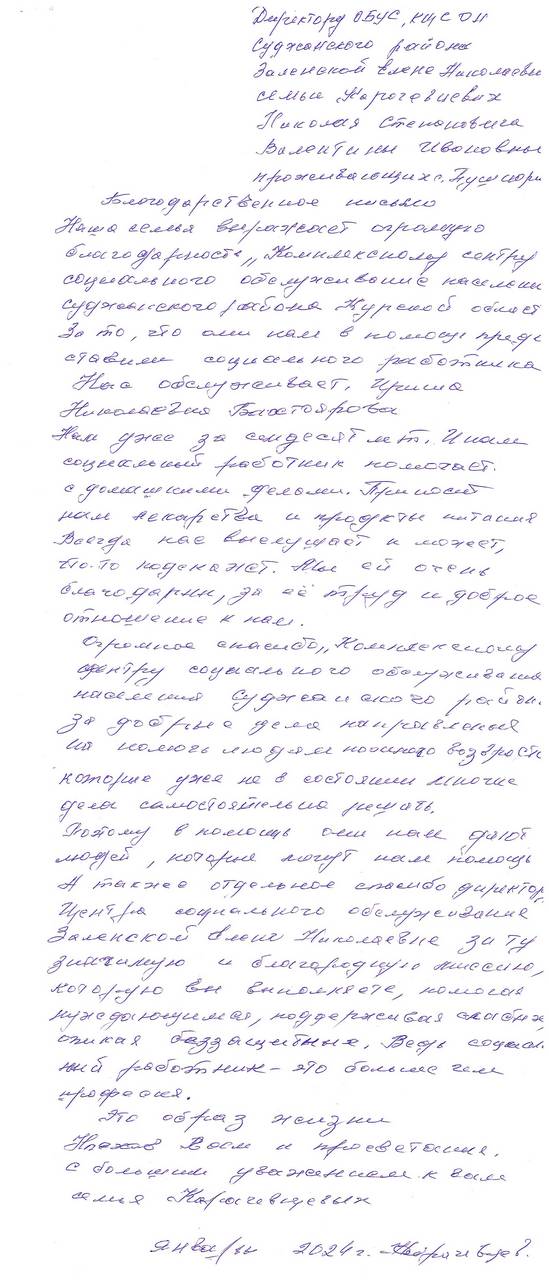 Директору ОБУС, КЦСОН
Суджанского района
Заленской Елене Николаевны
семьи Карачевцевых
Николая Степановича
Валентины Ивановны
проживающих с.
Благодарственное письмо
Наша семья выражает огромную
благодарность „Комплексному центру
социального обслуживание населени
Суджанского района Курской област
За то, что они нам в помощь пред
ставили социального работника
Нас обслуживает. Ирина
Николаевна
Нам уже за семдесят лет. И нам
социальный работник помогает.
с домашними делами. Приносит
нам лекарства и продукты питания
Всегда нас выслушает и может,
что-то подскажет. Мы ей очень
благодарны, за её труд и доброе
отношение к нам.
Огромное спасибо, „Комплексному
центру социального обслуживания
населения Суджанского райын.
за добрые дела направленые
на помощь людям пожилого возраста
которые уже не в состоянии многие
дела самостоятельно решать.
Поэтому в помощь они нам дают
людей, которые могут нам помощь
А также отдельное спасибо директор
Центра социального обслуживание
Заленской Елене Николаевне за ту
значимую и благородную миссию,
которую вы выполняете, помогая
нуждающимся, поддерживая слабых,
опекая беззащитные. Ведь социаль
ный работник – это больше чем
професия.
Это образ жизни
Успехов Вам и просветание.
с большим уважением к вам
семья Карачевцевых
январь 2024 г.